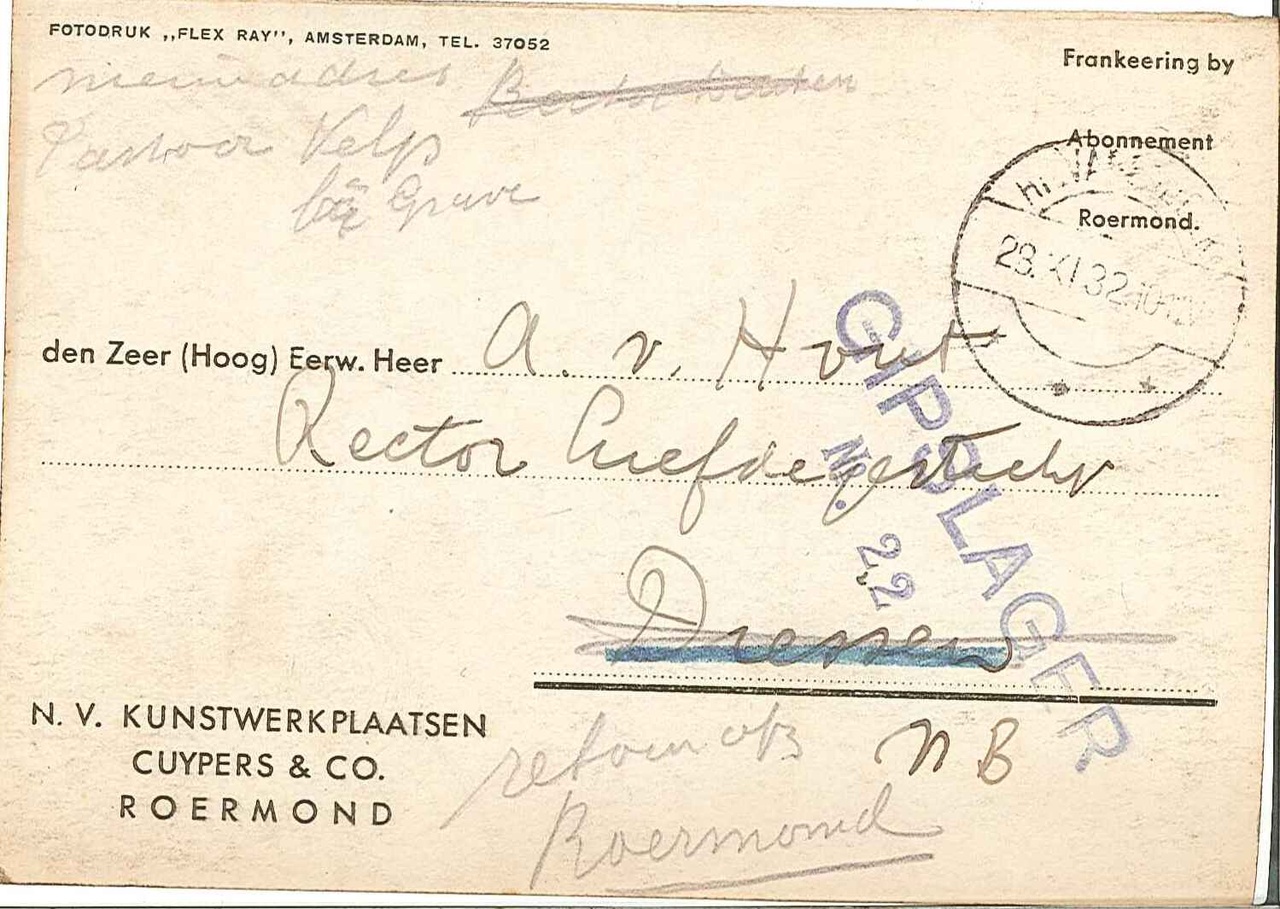 FOTODRUK „FLEX RAY”, AMSTERDAM, TEL. 37052
nieuw adres Rector
Pastoor Velp
bij Grave
Frankeering by
Abonnement
Roermond.
28.XI 32
den Zeer (Hoog) Eerw. Heer A. v. Hout
Rector Liefdegesticht
Driessen
N B
GIPSLAGER
No. 22
N. V. KUNSTWERKPLAATSEN
CUYPERS & CO.
ROERMOND
retour afz
Roermond